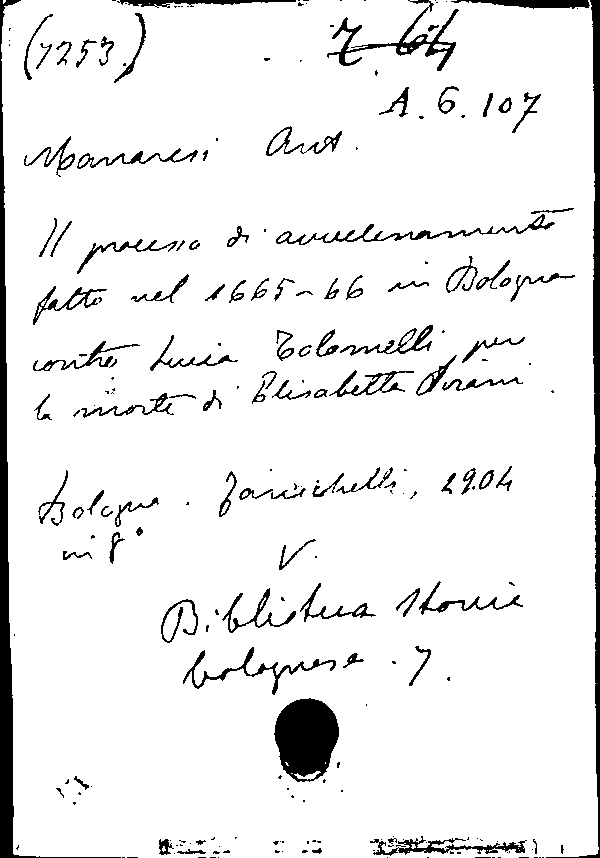 (7253)
7 64
A. 6. 107
Manaresi Ant.
Il processo di avvelenamento
fatto nel 1665-66 in Bologna
contro Lucia Tolomelli per
la morte di Elisabetta Sirani.
Bologna. Zanichelli, 1904
in 8°
V.
Biblioteca storica
bolognese. 7.